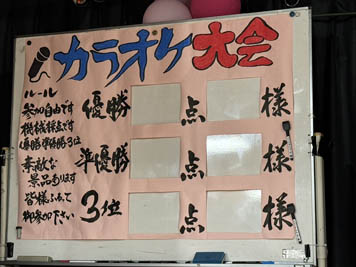 カラオケ大会
ルール
参加自由です
機械採点です
優勝準優勝3位
素敵な
景品あります
皆様ふるって
御参加下さい
優勝 点 様
準優勝 点 様
3位 点 様